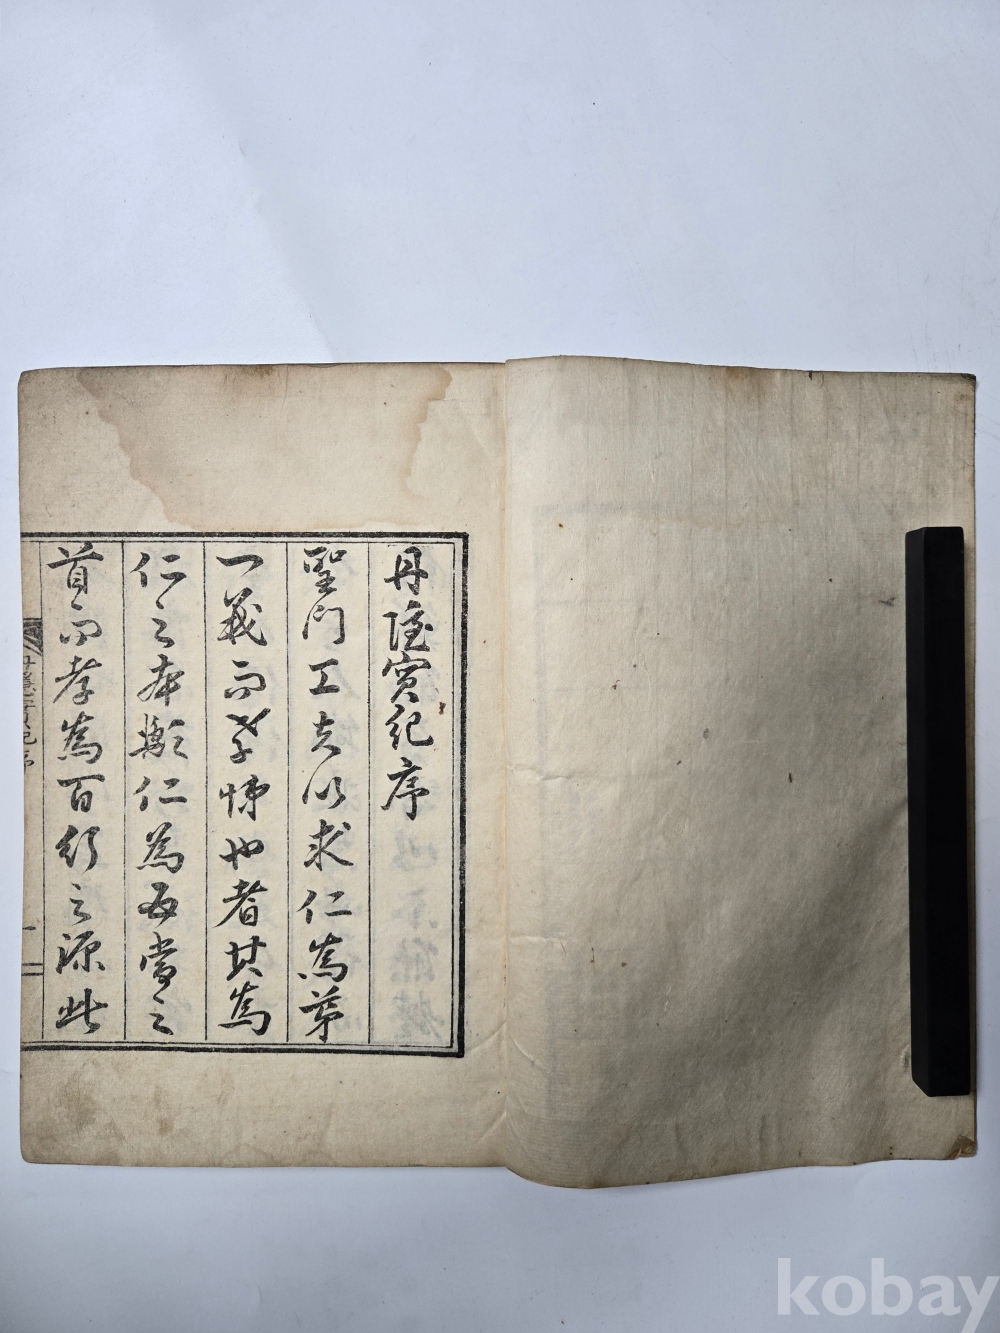 丹隱實紀序
聖門工夫以求仁為第
一義而孝悌也者其為
仁之本歟仁為五常之
首而孝為百行之源此
丹隱實紀序
一
kobay